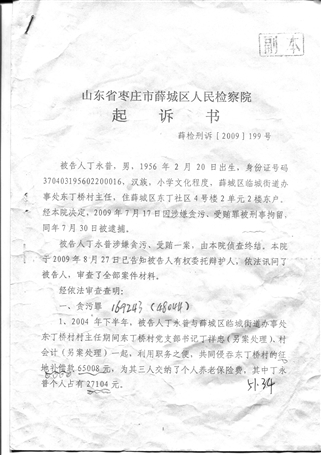 副本
山东省枣庄市薛城区人民检察院
起诉书
薛检刑诉［2009］199号
被告人丁永普，男，1956年2月20日出生，身份证号码
370403195602200016，汉族，小学文化程度，薛城区临城街道办
事处东丁桥村主任，住薛城区东丁社区4号楼2单元2楼东户。
经本院决定，2009年7月17日因涉嫌贪污、受贿罪被刑事拘留，
同年7月30日被逮捕。
被告人丁永普涉嫌贪污、受贿一案，由本院侦查终结。本院
于2009年8月27日已告知被告人有权委托辩护人，依法讯问了
被告人，审查了全部案件材料。
经依法审查查明：
一、贪污罪
1、2004年下半年，被告人丁永普与薛城区临城街道办事处
东丁桥村村主任期间东丁桥村党支部书记丁祥忠（另案处理）、村
会计（另案处理）一起，利用职务之便，共同侵吞东丁桥村的征
地补偿款65008元，为其三人交纳了个人养老保险费，其中丁永
普个人占有27104元。
51.34
1